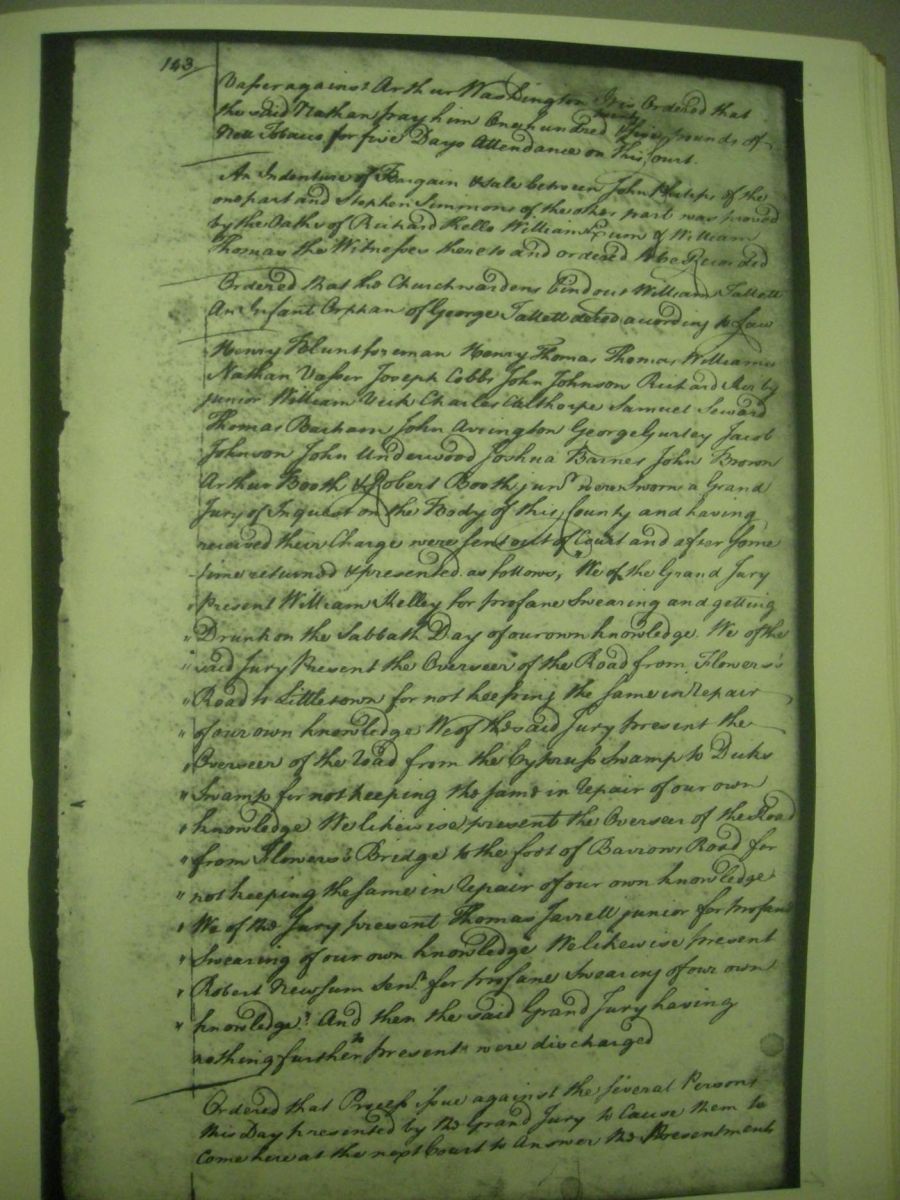 143
Vasser against Arthur Washington It is Ordered that
the said Nathan pay him One hundred & fifty five pounds of
Nett Tobacco for five Days Attendance on this Court.
An Indenture of Bargain & Sale between John Philips of the
one part and Stephen Simmons of the other part was proved
by the Oaths of Richard Kello William Exum & William
Thomas the Witnesses thereto and ordered to be Recorded
Ordered that the Churchwardens bind out William Tallett
An Infant Orphan of George Tallett deced according to Law
Henry Blunt foreman Henry Thomas Thomas Williams
Nathan Vasser Joseph Cobbs John Johnson Richard Kirby
junior William Vick Charles Calthorpe Samuel Seward
Thomas Barham John Arrington George Gurley Jacob
Johnson John Underwood Joshua Barnes John Brown
Arthur Booth & Robert Booth junr. were Sworn a Grand
Jury of Inquest on the Body of this County and having
received their Charge were sent out of Court and after some
time returned & presented as follows, "We of the Grand Jury
" present William Kelley for profane Swearing and getting
" Drunk on the Sabbath Day of our own knowledge. We of the
" said Jury Present the Overseer of the Road from Flowers's
" Road to Littletown for not keeping the same in repair
" of our own knowledge We of the said Jury present the
" Overseer of the road from the Cypress Swamp to Duks
" Swamp for not keeping the same in repair of our own
" knowledge We likewise present the Overseer of the Road
" from Flowers's Bridge to the foot of Barrows Road for
" not keeping the same in repair of our own knowledge
" We of the Jury present Thomas Jarrell junior for profane
" Swearing of our own knowledge We likewise present
" Robert Newsum Senr. for profane Swearing of our own
" knowledge" And then the said Grand Jury having
nothing further to present were discharged
Ordered that Process issue against the several Persons
this Day presented by the Grand Jury to Cause them to
Come here at the next Court to Answer the Presentments